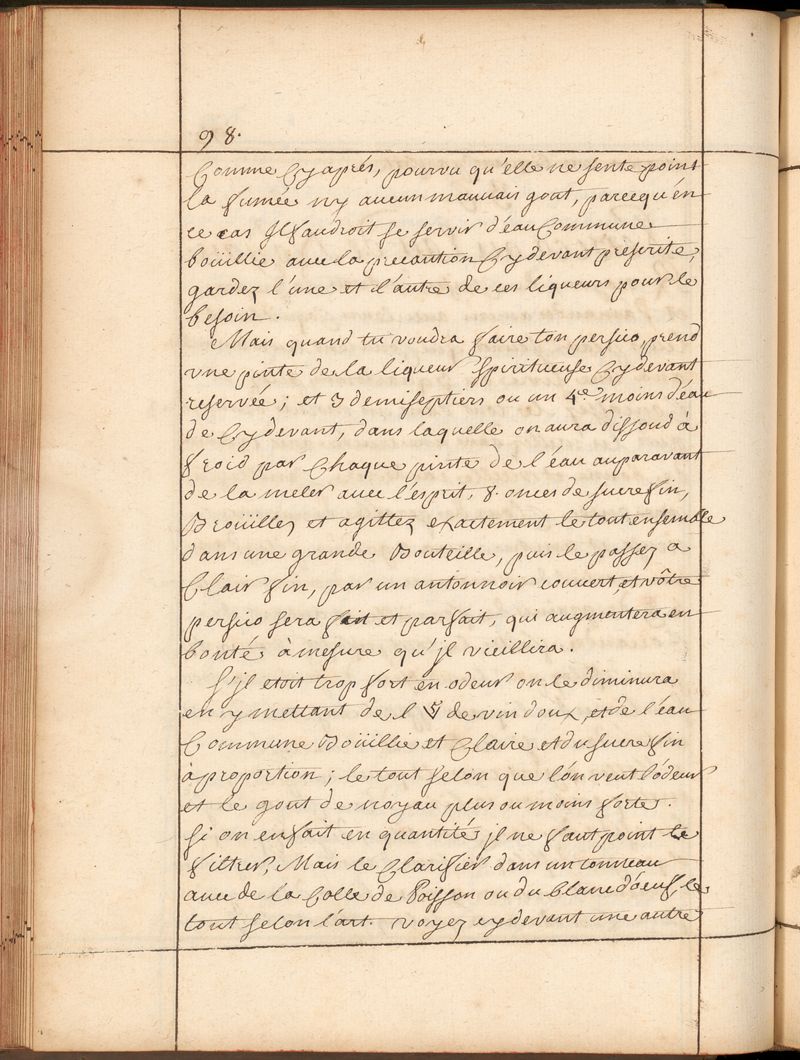 98.
Comme Cy aprés, pourvu qu'elle ne sente point
la fumée ny aucun mauvais gout, parcequ'en
ce cas Il faudroit se servir d'eau Commune
boüillie avec la precaution Cy devant prescrite,
gardez l'une et l'autre de ces liqueurs pour le
besoin.
Mais quand tu voudra faire ton persico, prend
vne pinte de la liqueur spiritueuse Cy devant
reservée; et 3 demiseptiers ou un 4.e moins d'eau
de Cy devant, dans laquelle on aura dissoud à
froid par Chaque pinte de l'eau auparavant
de la meler avec l'esprit, 8. onces de sucre fin,
Broüillez et agittez exactement le tout ensemble
dans une grande Bouteille, puis le passez a
Clair fin, par un antonnoir couvert, et vôtre
persico sera fait et parfait, qui augmentera en
bonté à mesure qu'jl vieillira.
S'jl etoit trop fort en odeur on le diminura
en y mettant de l' de vin doux, et de l'eau
Commune Boüillie et Claire et du sucre fin
à proportion; le tout selon que l'ón veut l'ódeur
et le gout de noyau plus ou moins forte.
Si on en fait en quantité jl ne faut point le
filtrer, Mais le Clarifier dans un tonneau
avec de la Colle de Poisson ou du blanc d'oeuf, le
tout selon l'art. voyez cy devant une autre